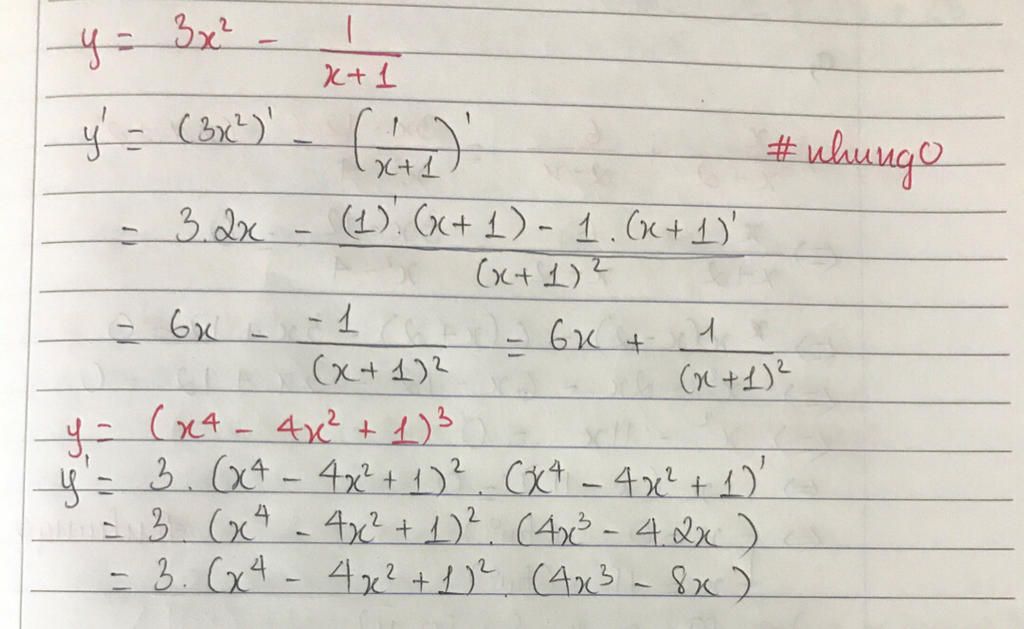 y = 3x² - 1/(x+1)
y' = (3x²)' - (1/(x+1))'
#nhung0
= 3.2x - ((1)'.(x+1) - 1.(x+1)')/(x+1)²
= 6x - -1/(x+1)² = 6x + 1/(x+1)²
y = (x⁴ - 4x² + 1)³
y' = 3.(x⁴ - 4x² + 1)².(x⁴ - 4x² + 1)'
= 3.(x⁴ - 4x² + 1)².(4x³ - 4.2x)
= 3.(x⁴ - 4x² + 1)².(4x³ - 8x)